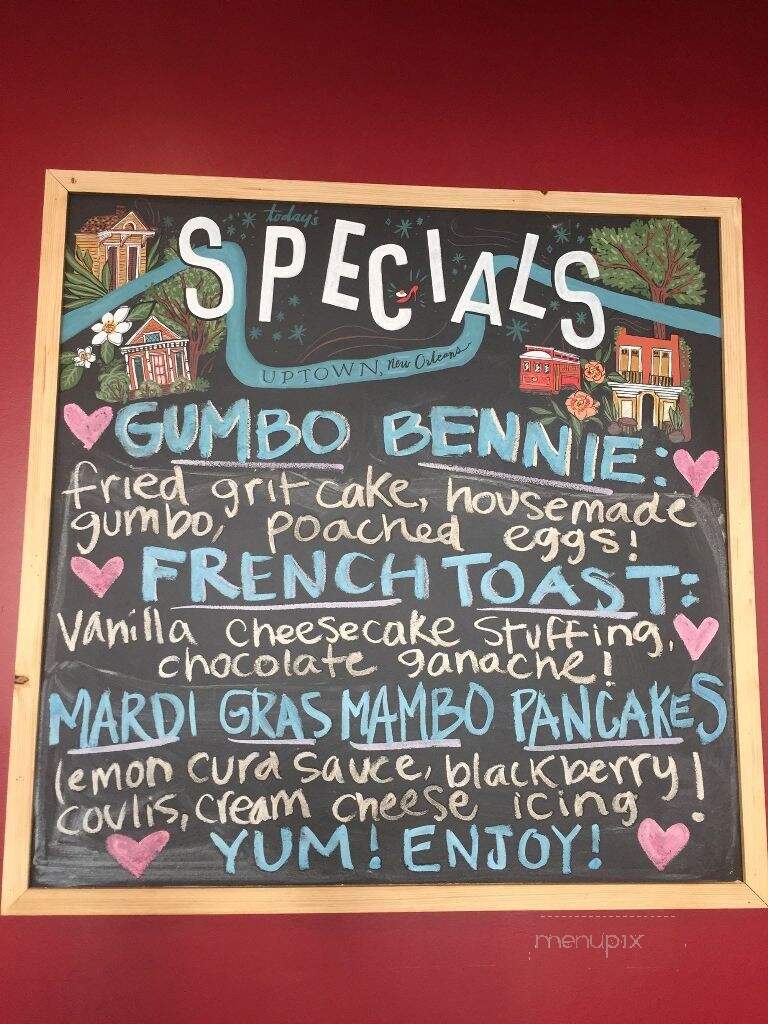 today's
SPECIALS
UPTOWN, New Orleans
GUMBO BENNIE:
fried grit cake, housemade
gumbo, poached eggs!
FRENCH TOAST:
vanilla cheesecake stuffing,
chocolate ganache!
MARDI GRAS MAMBO PANCAKES
lemon curd sauce, blackberry
coulis, cream cheese icing!
YUM! ENJOY!
menupix